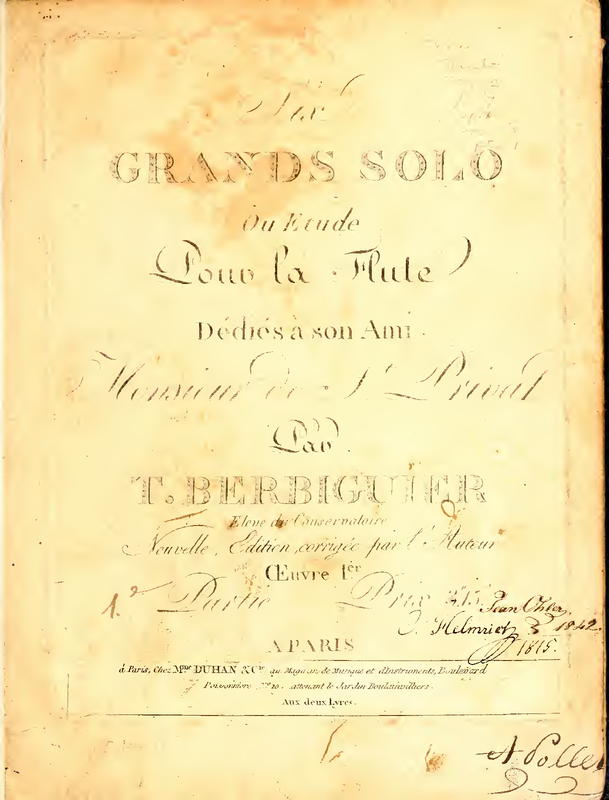 Six
GRANDS SOLO
Ou Etude
Pour la Flute
Dédiés à son Ami
Monsieur de St. Privat
Par
T. BERBIGUIER
Eleve du Conservatoire
Nouvelle Edition, corrigée par l'Auteur
Œuvre 1er
1.e Partie Prix
Helmrich 1842
1815.
A PARIS
à Paris, Chez Mme DUHAN & Cie au Magasin de Musique et d'Instruments, Boulevard
Poissonniere No 10. attenant le Jardin Boulainvilliers.
Aux deux Lyres.